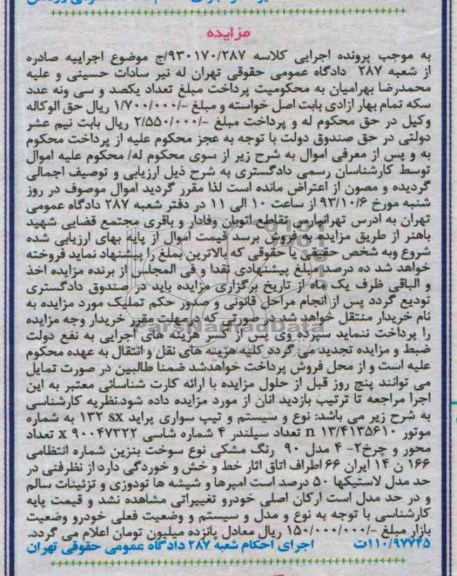 مزایده
به موجب پرونده اجرایی کلاسه ۹۳۰۱۷۰/۲۸۷/ج موضوع اجراییه صادره
از شعبه ۲۸۷ دادگاه عمومی حقوقی تهران له نیر سادات حسینی و علیه
محمدرضا بهرامیان به محکومیت پرداخت مبلغ تعداد یکصد و سی ونه عدد
سکه تمام بهار ازادی بابت اصل خواسته و مبلغ -/۱/۷۰۰/۰۰۰ ریال حق الوکاله
وکیل در حق محکوم له و پرداخت مبلغ -/۲/۵۵۰/۰۰۰ ریال بابت نیم عشر
دولتی در حق صندوق دولت با توجه به عجز محکوم علیه از پرداخت محکوم
به و پس از معرفی اموال به شرح زیر از سوی محکوم له/ محکوم علیه اموال
توسط کارشناسان رسمی دادگستری به شرح ذیل ارزیابی و توصیف اجمالی
گردیده و مصون از اعتراض مانده است لذا مقرر گردید اموال موصوف در روز
شنبه مورخ ۹۳/۱۰/۶ از ساعت ۱۰ الی ۱۱ در دفتر شعبه ۲۸۷ دادگاه عمومی
تهران به ادرس تهرانپارس تقاطع اتوبان وفادار و باقری مجتمع قضایی شهید
باهنر از طریق مزایده به فروش برسد قیمت اموال از پایه بهای ارزیابی شده
شروع وبه شخص حقیقی یا حقوقی که بالاترین مبلغ را پیشنهاد نماید فروخته
خواهد شد ده درصد مبلغ پیشنهادی نقدا و فی المجلس از برنده مزایده اخذ
و الباقی ظرف یک ماه از تاریخ برگزاری مزایده باید در صندوق دادگستری
تودیع گردد پس از انجام مراحل قانونی و صدور حکم تملیک مورد مزایده به
نام خریدار منتقل خواهد شد در صورتی که در مهلت مقرر خریدار وجه مزایده
را پرداخت ننماید سپرده وی پس از کسر هزینه های اجرایی به نفع دولت
ضبط و مزایده تجدید می گردد کلیه هزینه های نقل و انتقال به عهده محکوم
علیه است و از محل فروش پرداخت خواهدشد ضمنا طالبین در صورت تمایل
می توانند پنج روز قبل از حلول مزایده با ارائه کارت شناسائی معتبر به این
اجرا مراجعه تا ترتیب بازدید انان از مورد مزایده داده شود.نظریه کارشناسی
به شرح زیر می باشد: نوع و سیستم و تیپ سواری پراید ۱۳۲ sx به شماره
موتور n ۱۳/۴۱۳۵۶۱۰ تعداد سیلندر ۴ شماره شاسی x ۹۰۰۴۷۳۲۲ تعداد
محور و چرخ۲- ۴ مدل ۹۰ رنگ مشکی نوع سوخت بنزین شماره انتظامی
۱۶۶ ن ۱۴ ایران ۶۶ اطراف اتاق اثار خط و خش و خوردگی دارد؛ از نظرفنی در
حد مدل لاستیکها ۵۰ درصد است امپرها و شیشه ها تودوزی و تزئینات سالم
و در حد مدل است ارکان اصلی خودرو تغییراتی مشاهده نشد و قیمت پایه
کارشناسی با توجه به نوع و مدل و سیستم و وضعیت فعلی خودرو وضعیت
بازار مبلغ -/۱۵۰/۰۰۰/۰۰۰ ریال معادل پانزده میلیون تومان اعلام می گردد.
۱۱۰/۹۷۷۴۵ت اجرای احکام شعبه ۲۸۷ دادگاه عمومی حقوقی تهران
ParsNamadData